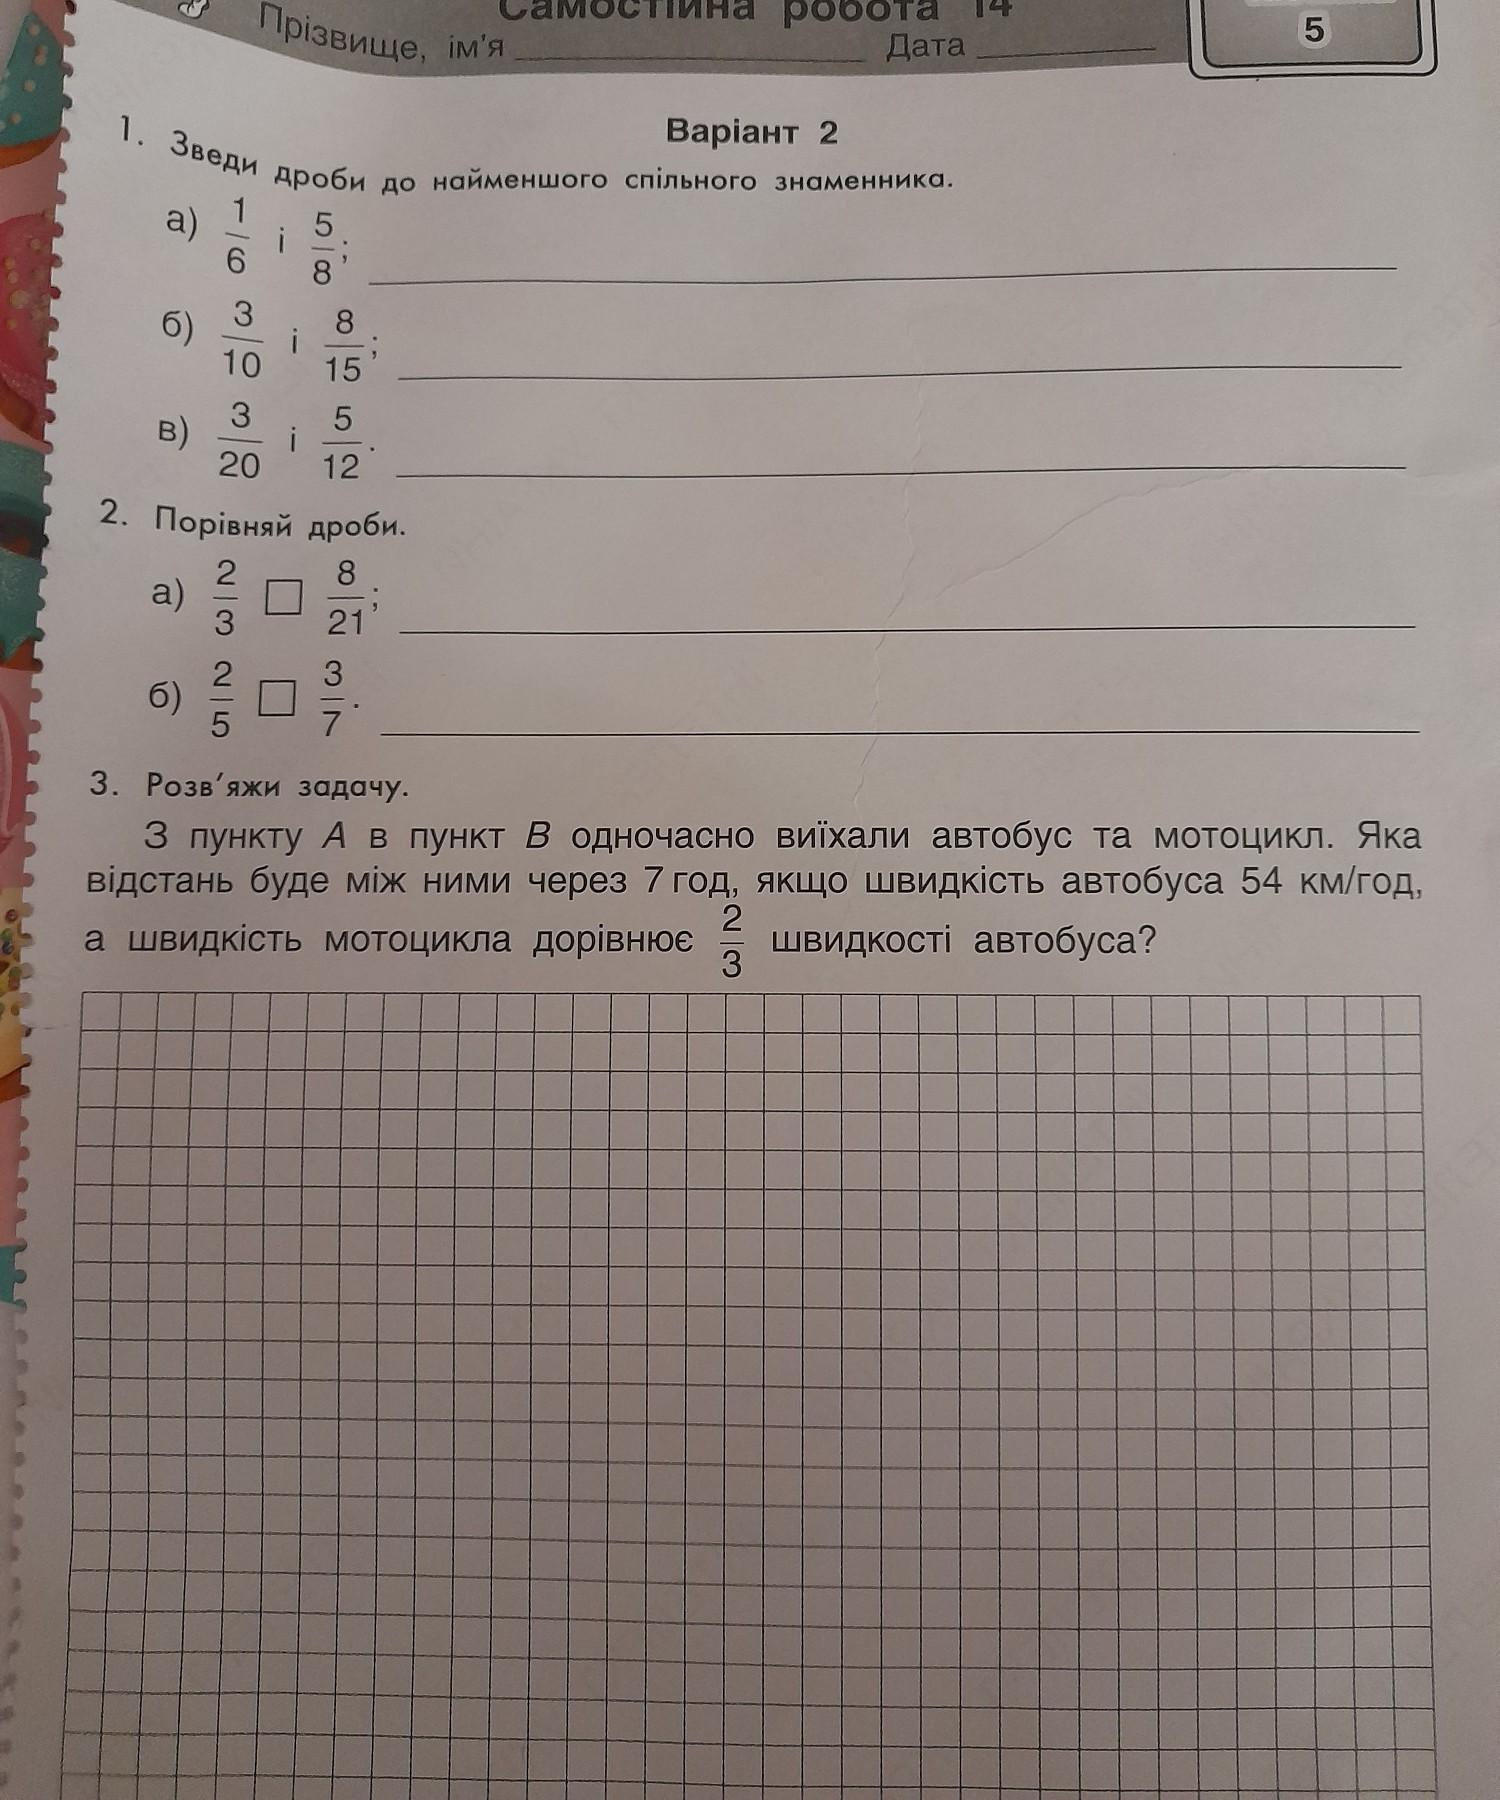 Самостійна робота 14
Прізвище, ім'я
Дата
5
Варіант 2
1. Зведи дроби до найменшого спільного знаменника.
а) 1/6 і 5/8;
б) 3/10 і 8/15;
в) 3/20 і 5/12.
2. Порівняй дроби.
а) 2/3 □ 8/21;
б) 2/5 □ 3/7.
3. Розв'яжи задачу.
З пункту А в пункт В одночасно виїхали автобус та мотоцикл. Яка
відстань буде між ними через 7 год, якщо швидкість автобуса 54 км/год,
а швидкість мотоцикла дорівнює 2/3 швидкості автобуса?